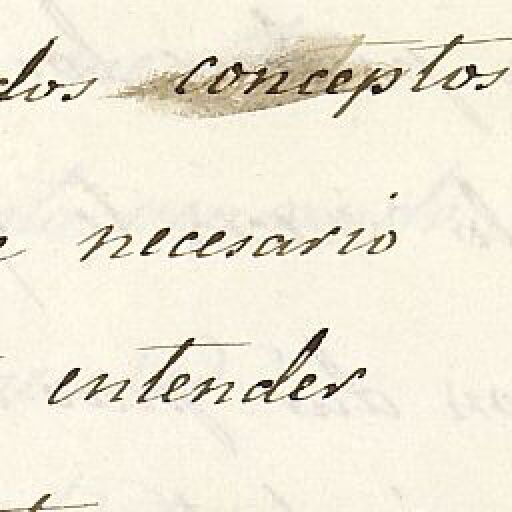 dos conceptos
necesario
entender